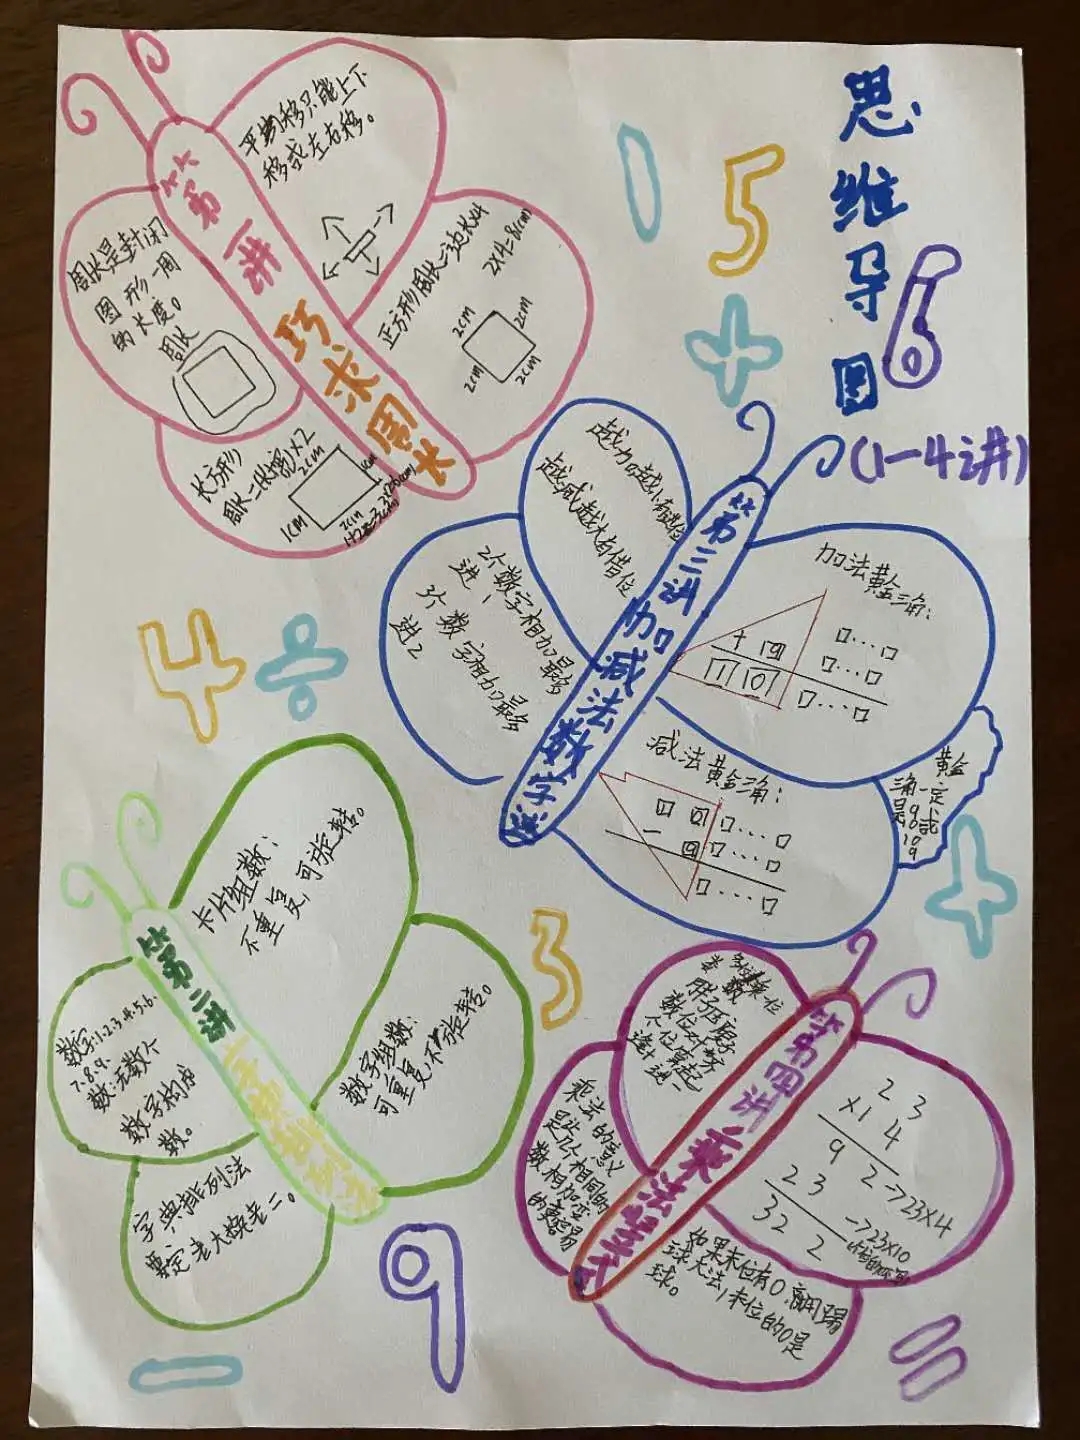 思维导图
(1-4讲)
1
5
+
6
第一讲
巧求周长
平移只能上下
移或左右移。
周长是封闭
图形一周
的长度。
周长
正方形周长=边长×4
2×4=8(cm)
2cm
2cm
2cm
2cm
长方形
周长=(长+宽)×2
2cm
1cm
1cm
2cm
4
÷
第三讲
加减法数字谜
越加越小有进位
越减越大有借位
2个数字相加最多
进1
3个数字相加最多
进2
加法黄金三角:
+ 9
1 0
减法黄金三角:
-
黄金
三角一定
是9或
10
第二讲
卡片组数:
不重复,可旋转。
数字组数:
可重复,不旋转。
数字:1.2.3.4.5.6.
7.8.9.
数:无数个
数字构成
数。
字典排列法
要定老大换老二。
3
+
第四讲
乘法竖式
数位对齐
个位算起
乘法的意义
是求几个相同的
数相加变
的更容易
2 3
×1 4
9 2→23×4
2 3 →23×10
3 2 2
如果末位有0,离用踢
球大法,末位的0是
球。
9
-
=